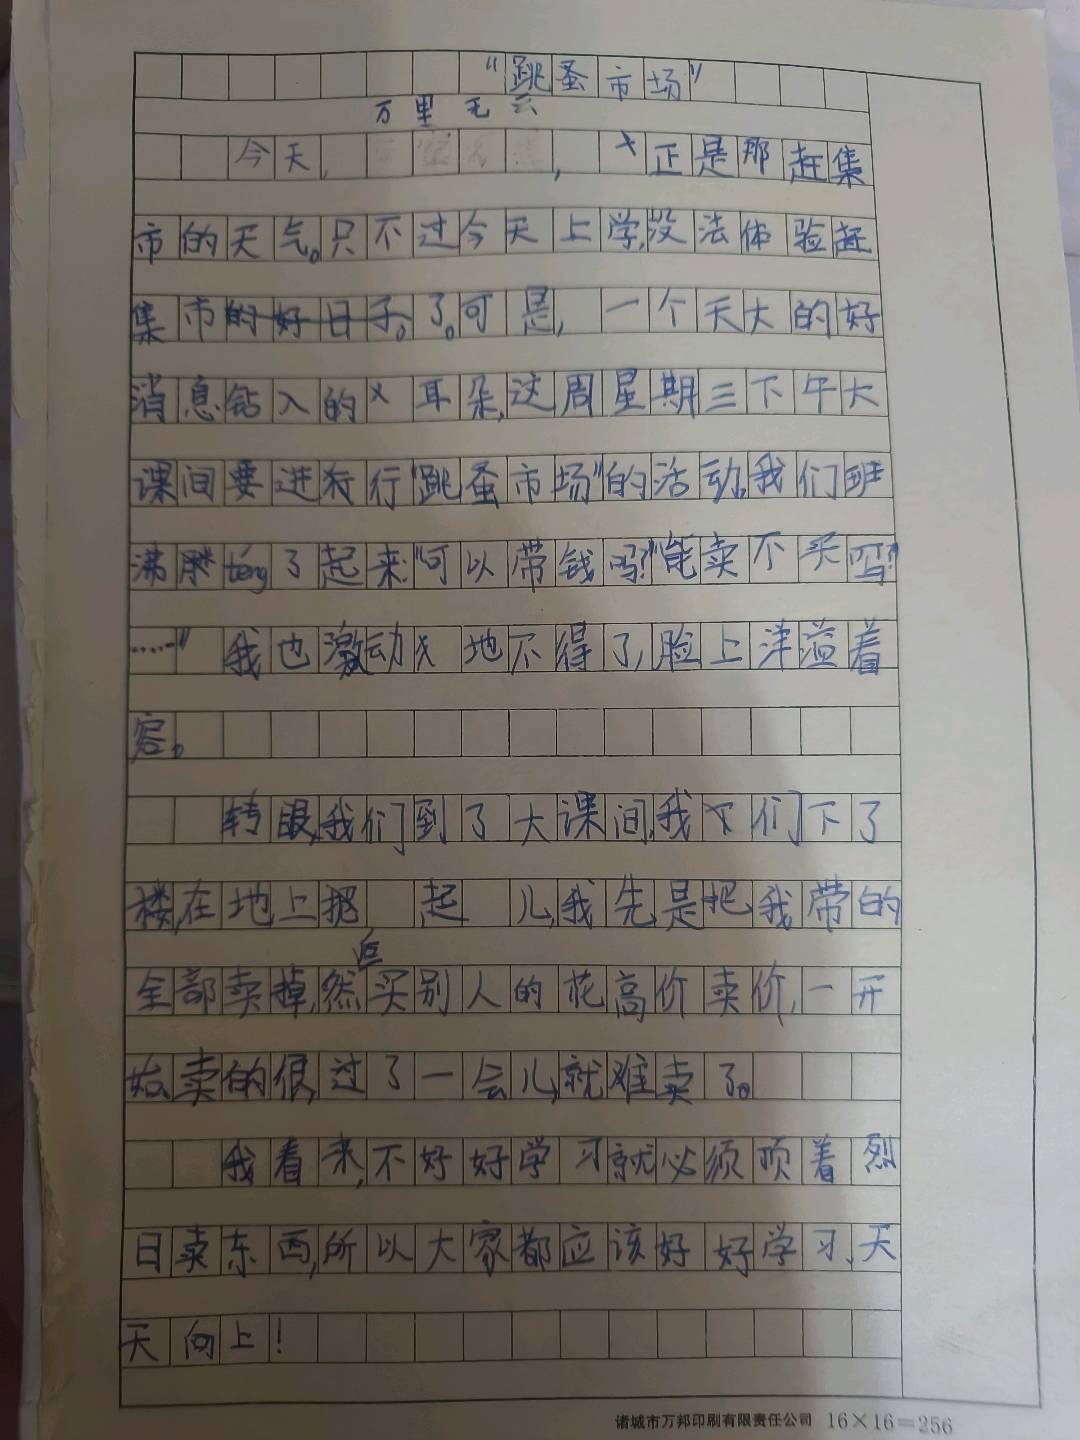 “跳蚤市场”
万里无云
今天，，正是那赶集
市的天气。只不过今天上学，没法体验赶
集市的好日子。了。可是，一个天大的好
消息钻入的耳朵，这周星期三下午大
课间要进行“跳蚤市场”的活动，我们班
沸腾téng了起来“可以带钱吗？”“能卖不买吗？
……”我也激动地不得了，脸上洋溢着
容。
转眼，我们到了大课间，我们下了
楼，在地上把起儿，我先是把我带的
后
全部卖掉，然买别人的花高价卖价，一开
始卖的很，过了一会儿，就难卖了。
我看来，不好好学习就必须顶着烈
日卖东西，所以大家都应该好好学习、天
天向上！
诸城市万邦印刷有限责任公司 16×16=256